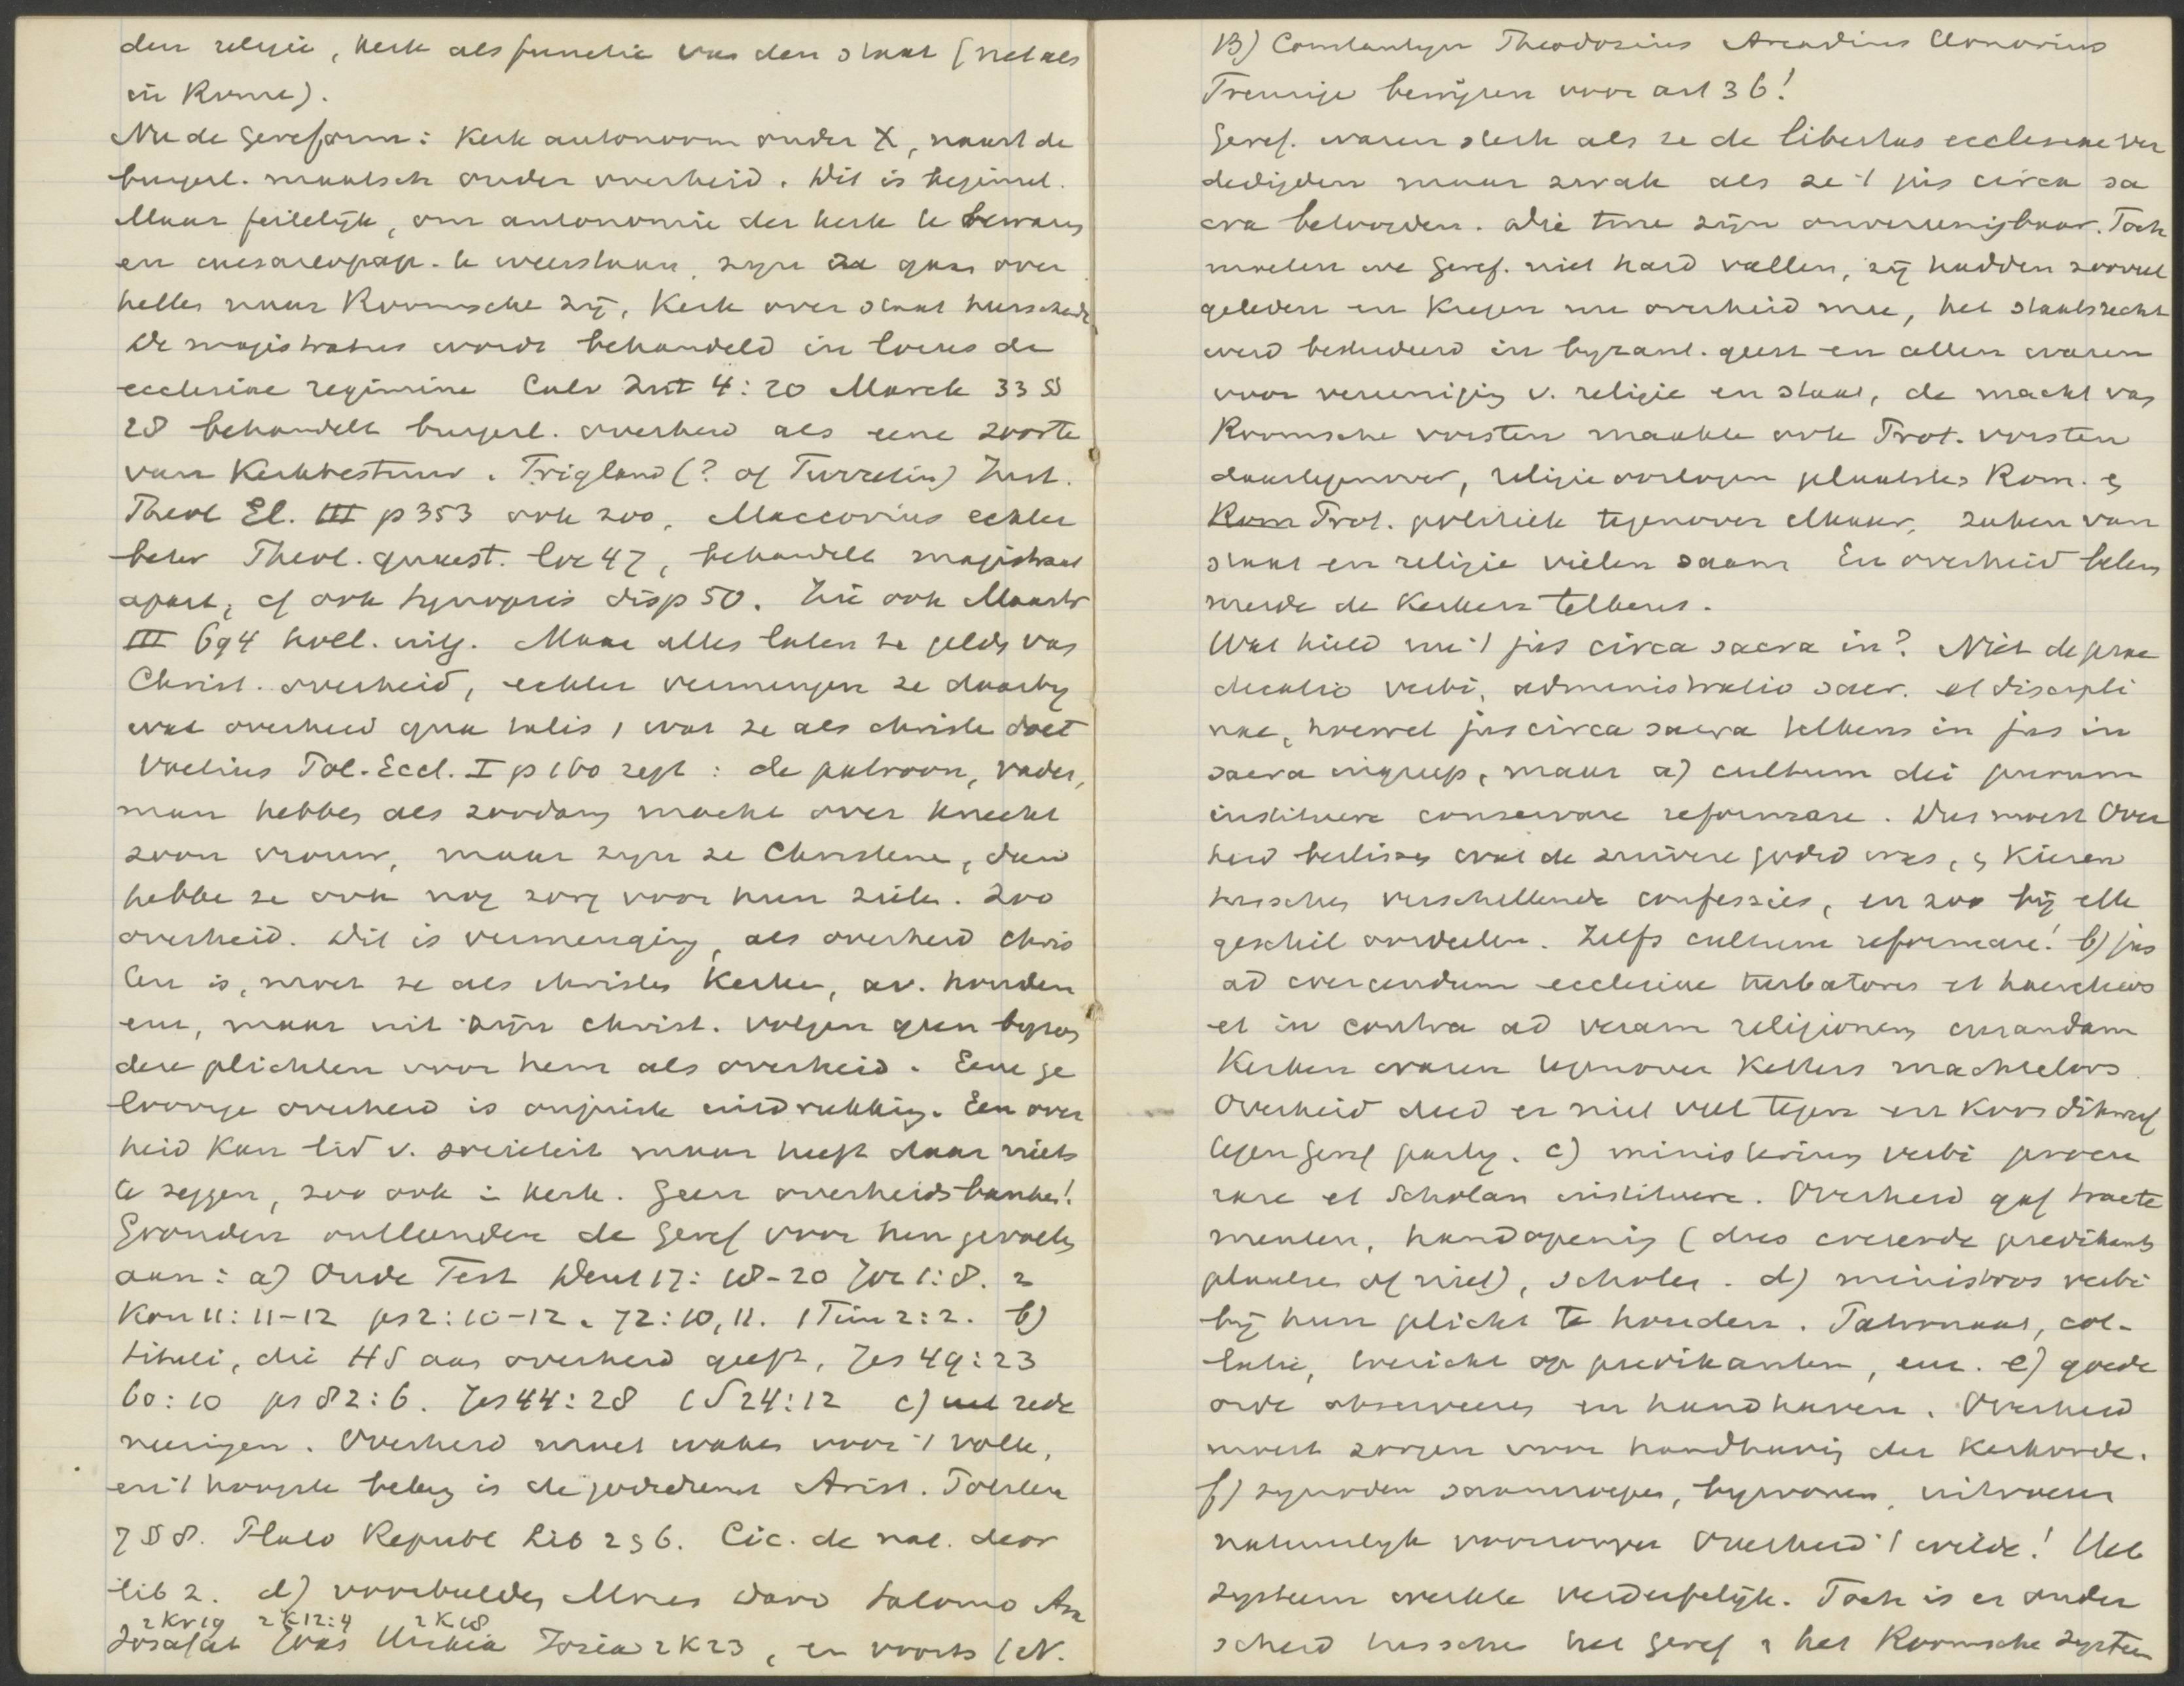 den religie, kerk als functie van den staat (net als
in Rome).
Nu de Gereform: Kerk autonoom onder X, naast de
burgerl. maatsch onder overheid. Dit is beginsel.
Maar feitelijk, om autonomie der kerk te bewaren
en caesareopap. te weerstaan, zyn ze gaan over
hellen naar Roomsche zij, Kerk over staat heerschende
De magistratus wordt behandeld in locus de
ecclesiae regimine Calv Inst 4:20 Marck 33 §§
28 behandelt burgerl. overheid als eene soorte
van Kerkbestuur. Trigland (? of Turretin) Inst.
Theol El. III p 353 ook zoo, Maccovius echter
beter Theol. quaest. loc 47, behandelt magistraat
apart, cf ook Synopsis disp 50. Zie ook Mastr
III 694 holl. uitg. Maar alles laten ze gelden van
Christ. overheid, echter vermengen ze daarby
wat overheid qua talis, wat ze als christen doet
Voetius Pol. Eccl. I p 160 zegt: de patroon, vader,
man hebben als zoodanig macht over knecht
zoon vrouw, maar zyn ze Christenen, dan
hebben ze ook nog zorg voor hun zielen. Zoo
overheid. Dit is vermenging, als overheid chris
ten is, moet ze als christen kerken, av. houden
enz, maar uit zijn christ. volgen geen byzon
dere plichten voor hem als overheid. Eene ge
loovige overheid is onjuiste uitdrukking. Een over
heid kan lid v. societeit maar heeft daar niets
te zeggen, zoo ook in kerk. Geen overheidsbanken!
Gronden ontleenden de Geref voor hun gevoelen
aan: a) Oude Test Deut 17:18-20 Joz 1:8. 2
Kon 11:11-12 ps 2:10-12. 72:10,11. 1 Tim 2:2. b)
tituli, die HS aan overheid geeft, Jes 49:23
60:10 ps 82:6. Jes 44:28 1 S 24:12 c) uit rede
neeringen. Overheid moet waken voor 't volk,
en 't hoogste belang is de godsdienst Arist. Politica
7 § 8. Plato Republ Lib 2 § 6. Cic. de nat. deor
lib 2. d) voorbeelden Mozes David Salomo Asa
2 Kr 19 2 K 12:4 2 K 18
Josafat Joas Hiskia Josia 2 K 23, en voorts (N.
B) Constantyn Theodosius Arcadius Honorius
Treurige bewijzen voor art 36!
Geref. waren sterk als ze de libertas ecclesiae ver
dedigden maar zwak als ze 't jus circa sa
cra betoogden. Die twee zijn onvereenigbaar. Toch
moeten we Geref. niet hard vallen, zij hadden zooveel
geleden en kregen nu overheid mee, het staatsrecht
werd bestudeerd in byzant. geest en allen waren
voor vereeniging v. religie en staat, de macht van
Roomsche vorsten maakte ook Prot. vorsten
daartegenover, religieoorlogen plaatsten Rom. &
Prot. politiek tegenover elkaar, zaken van
staat en religie vielen saam En overheid beloon
de de kerken telkens.
Wat hield nu 't jus circa sacra in? Niet de prae
dicatio verbi, administratio sacr. et discipli
nae, hoewel jus circa sacra telkens in jus in
sacra ingreep, maar a) cultum dei purum
instituere conservare reformare. Dus moest Over
heid beslissen wat de zuivere godsd was, & kiezen
tusschen verschillende confessies, en zoo bij elk
geschil oordeelen. Zelfs cultum reformare! b) jus
ad coercendum ecclesiae turbatores et haereticos
et in contra ad veram religionem curandam
Kerken waren tegenover ketters machteloos.
Overheid deed er niet veel tegen en koos dikwerf
tegen geref party. c) ministerium verbi procu
rare et Scholas instituere. Overheid gaf tracte
menten, handopening (dus creeerde predikants
plaatsen of niet), scholen. d) ministros verbi
bij hun plicht te houden. Patronaat, col-
latie, toezicht op predikanten, enz. e) goede
orde observeeren en handhaven. Overheid
moest zorgen voor handhaving der Kerkorde.
f) synoden saamroepen, bywonen,
natuurlyk Overheid 't wilde! Het
systeem werkte verderfelijk. Toch is er onder
scheid tusschen het geref & het Roomsche systeem